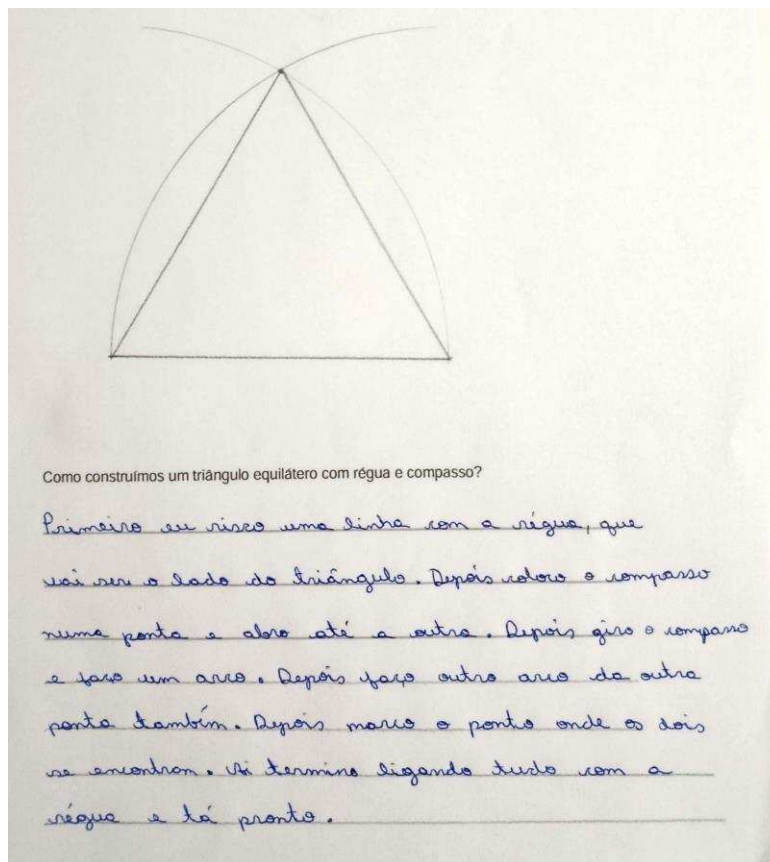 Como construímos um triângulo equilátero com régua e compasso?
Primeiro eu risco uma linha com a régua, que
vai ser o lado do triângulo. Depois coloco o compasso
numa ponta e abro até a outra. Depois giro o compasso
e faço um arco. Depois faço outro arco da outra
ponta também. Depois marco o ponto onde os dois
se encontram. Aí termino ligando tudo com a
régua e tá pronto.